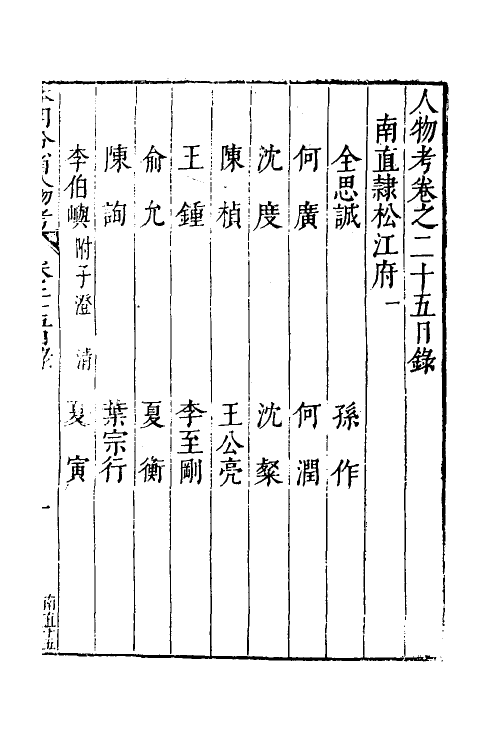 人物考卷之二十五目錄
南直隸松江府一
全思誠　孫作
何廣　何潤
沈度　沈粲
陳楨　王公亮
王鍾　李至剛
俞允　夏衡
陳詢　葉宗行
李伯嶼附子澄　清　夏寅
本朝分省人物考　卷之二十五目錄　一　南直十五